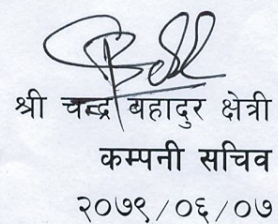 श्री चन्द्र बहादुर क्षेत्री
कम्पनी सचिव
२०७९/०६/०७